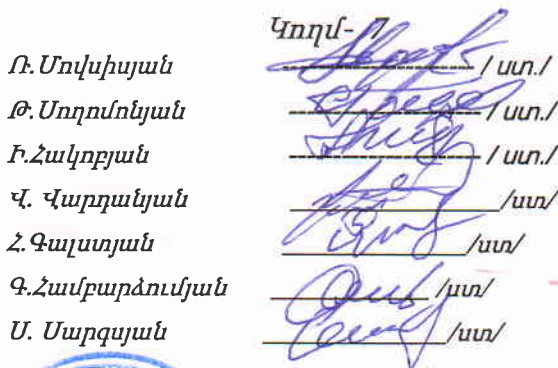 Կողմ- 7
Ռ.Մովսիսյան / ստ./
Թ.Սողոմոնյան / ստ./
Ի.Հակոբյան / ստ./
Վ. Վարդանյան /ստ/
Հ.Գալստյան /ստ/
Գ.Համբարձումյան /մտ/
Ս. Սարգսյան /ստ/